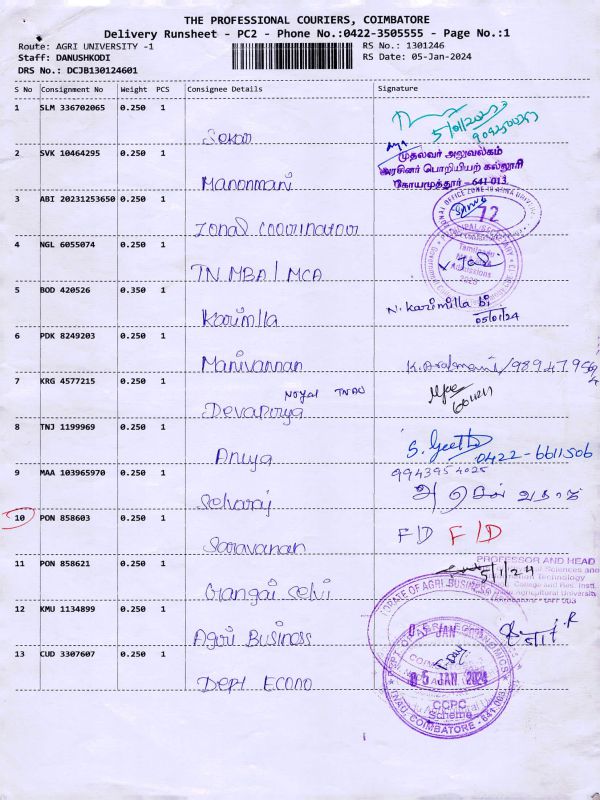 THE PROFESSIONAL COURIERS, COIMBATORE
Delivery Runsheet - PC2 - Phone No.:0422-3505555 - Page No.:1
Route: AGRI UNIVERSITY -1 RS No.: 1301246
Staff: DANUSHKODI RS Date: 05-Jan-2024
DRS No.: DCJB130124601
S No Consignment No Weight PCS Consignee Details Signature
1 SLM 336702065 0.250 1
5/01/2023
2 SVK 10464295 0.250 1 Manonmani
முதல்வர் அலுவலகம்
அரசினர் பொறியியற் கல்லூரி
கோயமுத்தூர் - 641 013
3 ABI 20231253650 0.250 1 Zonal Coordinator
72
4 NGL 6055074 0.250 1 TN MBA / MCA
Tamilnadu
Admissions
5 BOD 420526 0.350 1 Karimlla N. Karimilla bi
05/01/24
6 PDK 8249203 0.250 1 Manivannan
7 KRG 4577215 0.250 1 Devapriya Noyal TNAU
8 TNJ 1199969 0.250 1 Anuya S. Geetha
0422-6611506
9 MAA 103965970 0.250 1 Selvaraj 9943954025
10 PON 858603 0.250 1 Saravanan F D F D
11 PON 858621 0.250 1 Selvi 5/1/24
PROFESSOR AND HEAD
12 KMU 1134899 0.250 1 Agri Business
05 JAN 2024
13 CUD 3307607 0.250 1 Dept Econo
05 JAN 2024
CCPC
Scheme
TNAU, COIMBATORE - 641 003